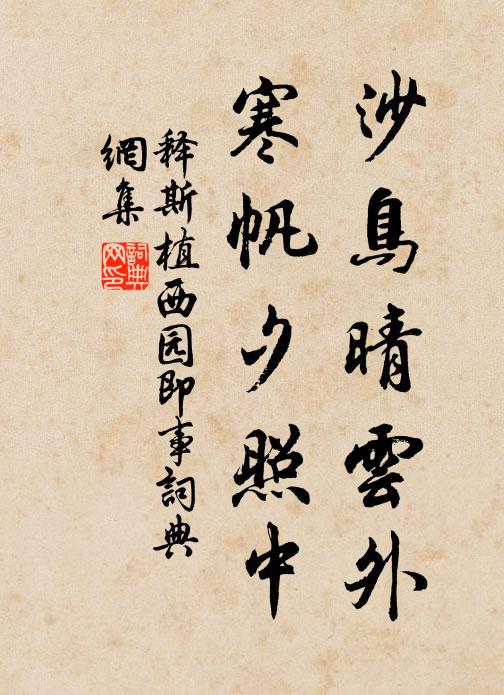 沙鳥晴雲外
寒帆夕照中
释斯植西园即事詞典
網集
詞典
网印